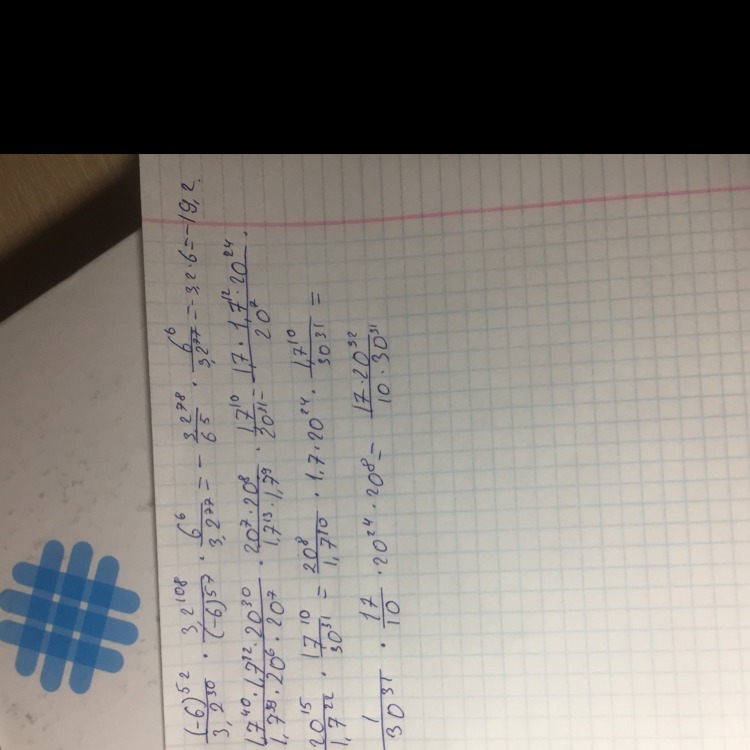 (-6)^52/3,2^30 · 3,2^108/(-6)^57 · 6^6/3,2^77 = - 3,2^78/6^5 · 6^6/3,2^77 = -3,2·6 = -19,2.
1,7^40·1,7^12·20^30/1,7^39·20^6·20^7 · 20^7·20^8/1,7^13·1,7^9 · 1,7^10/20^31 = 1,7·1,7^12·20^24/20^7 ·
20^15/1,7^22 · 1,7^10/30^31 = 20^8/1,7^10 · 1,7·20^24 · 1,7^10/30^31 =
1/30^31 · 17/10 · 20^24·20^8 = 17·20^32/10·30^31